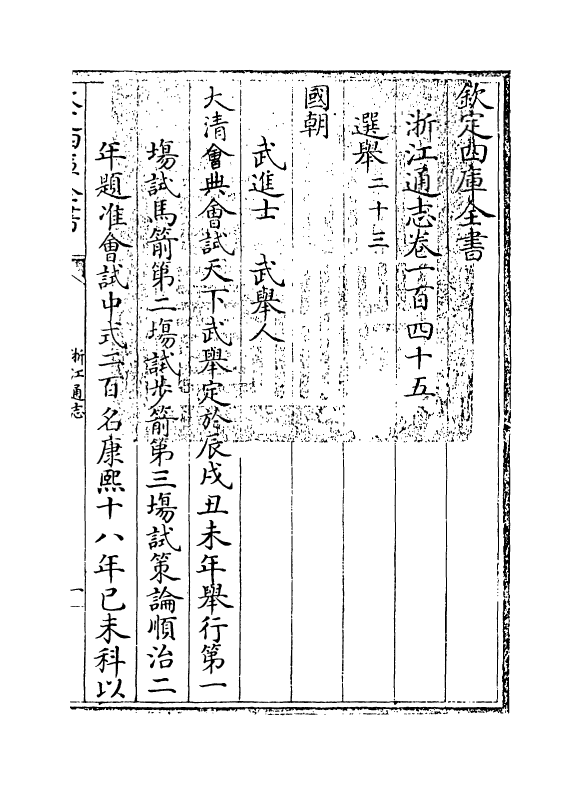 欽定四庫全書
浙江通志卷一百四十五
選舉二十三
國朝
武進士 武舉人
大清會典會試天下武舉定於辰戌丑未年舉行第一
塲試馬箭第二塲試步箭第三塲試策論順治二
年題准會試中式二百名康熙十八年已未科以
浙江通志
一